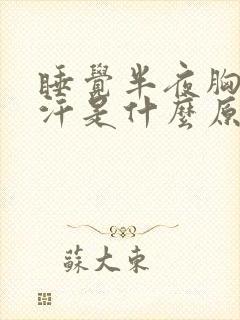 睡覺半夜胸
汗是什麼原
蘇大東